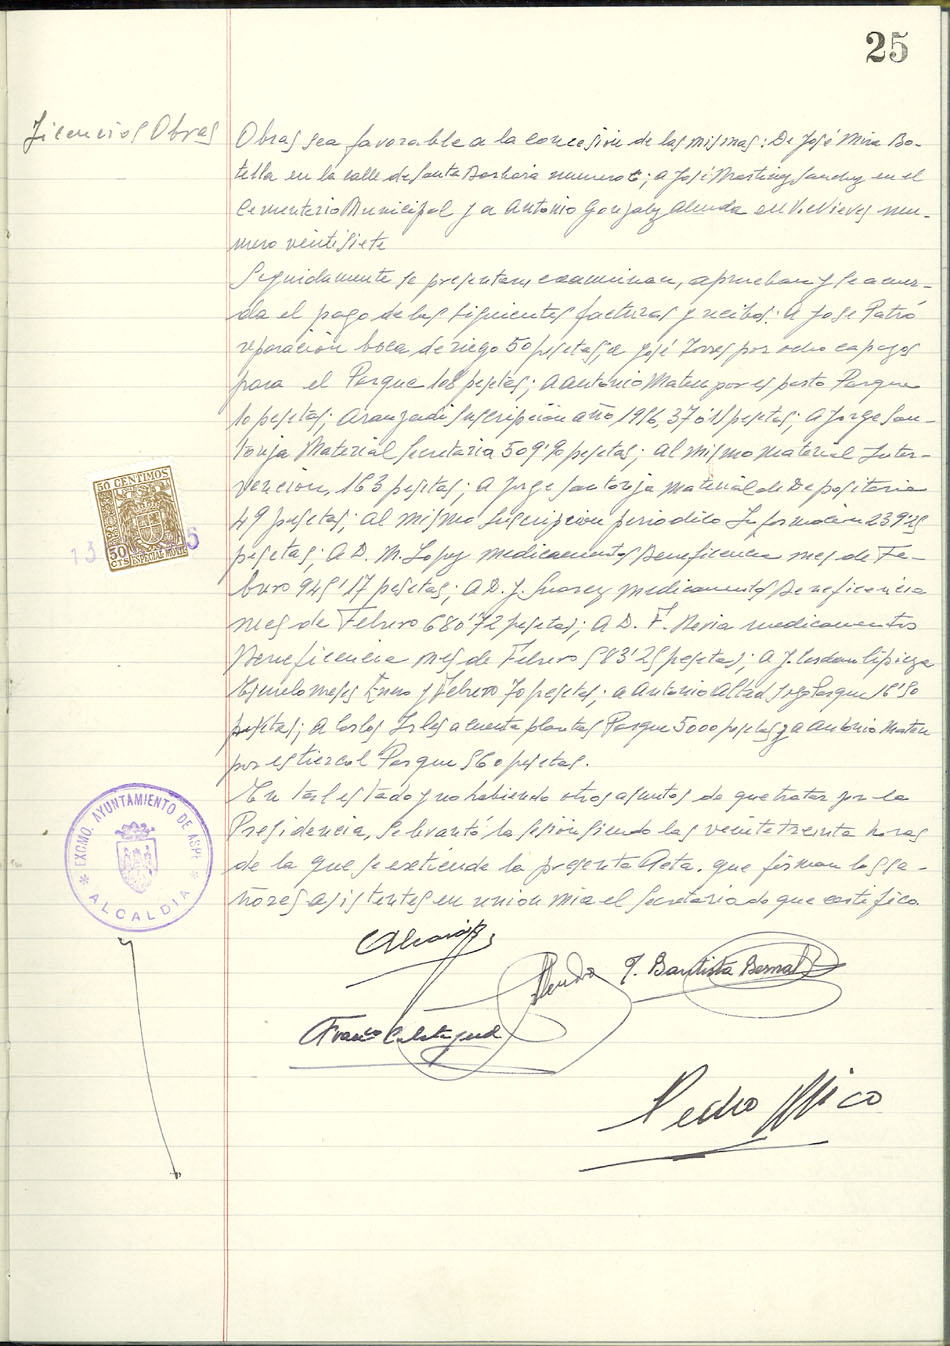 25
Licencias Obras
Obras sea favorable a la concesión de las mismas: De José Mira Bo-
tella en la calle de Santa Barbara numero 6; a José Martinez Sanchez en el
Cementerio Municipal y a Antonio Gonzalez Almeda en V. Nieves nu-
mero veintisiete
Seguidamente se presentan, examinan, aprueban y se acuer-
da el pago de las siguientes facturas y recibos: A Jose Patró
reparación boca de riego 50 pesetas, a José Torres por ocho capazos
para el Parque 108 pesetas; a Antonio Mateu por esparto Parque
10 pesetas; Aranzadi suscripción año 1956, 370'15 pesetas; A Jorge San-
tonja Material Secretaria 509'90 pesetas; al mismo material Inter-
vencion, 163 pesetas; A Jorge Santonja material de Depositaria
49 pesetas; al mismo suscripcion periodico Informacion 239'25
pesetas; A D. M. Lopez medicamentos Beneficencia mes de Fe-
brero 945'17 pesetas; a D. J. Suarez medicamentos Beneficencia
mes de Febrero 680'72 pesetas; A D. F. medicamentos
Beneficencia mes de Febrero 583'25 pesetas; A J. limpieza
Escuela meses Enero y Febrero 70 pesetas; a Antonio Parque 16'50
pesetas; a Carlos Irles a cuenta plantas Parque 5000 pesetas y a Antonio Mateu
por estiercol Parque 560 pesetas.
En tal estado y no habiendo otros asuntos de que tratar por la
Presidencia, se levantó la sesion siendo las veinte treinta horas
de la que se extiende la presente Acta, que firman los se-
ñores asistentes en union mia el Secretario do que certifico.
50 CENTIMOS
50
CTS ESPECIAL MOVIL
13 5
EXCMO. AYUNTAMIENTO DE ASPE
ALCALDIA
Almeda
J. Bautista Bernal
Franco Calatayud
Pedro Mico